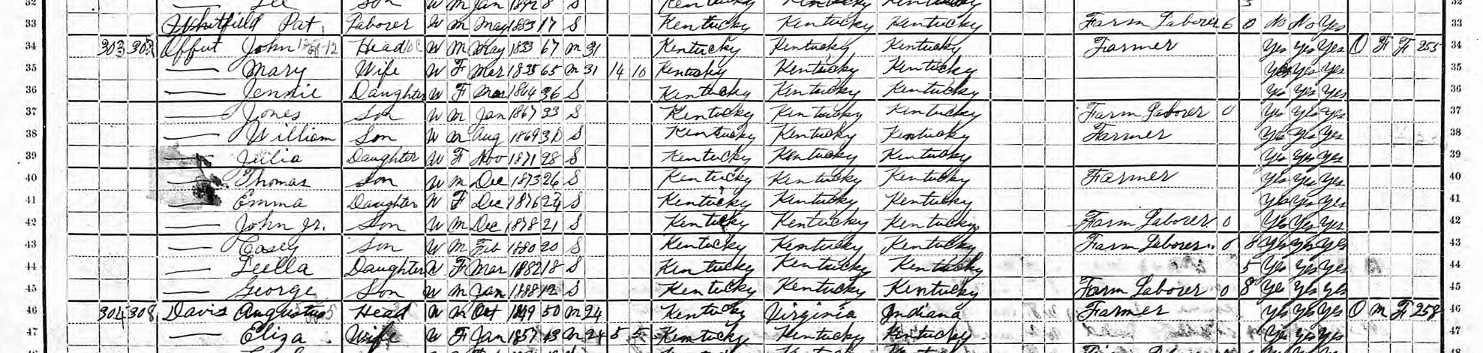 Son W M Jan 8 S Kentucky Kentucky Kentucky
33 Whitfield Pat Laborer W M May 1883 17 S Kentucky Kentucky Kentucky Farm Laborer 6 0 No No Yes 33
34 303 Offut John Head W M May 1833 67 M 31 Kentucky Kentucky Kentucky Farmer Yes Yes Yes O F F 255 34
35 — Mary Wife W F Mar 1835 65 M 31 14 10 Kentucky Kentucky Kentucky Yes Yes Yes 35
36 — Jennie Daughter W F Mar 1864 36 S Kentucky Kentucky Kentucky Yes Yes Yes 36
37 — Jones Son W M Jan 1867 33 S Kentucky Kentucky Kentucky Farm Laborer 0 Yes Yes Yes 37
38 — William Son W M Aug 1869 30 S Kentucky Kentucky Kentucky Farmer Yes Yes Yes 38
39 — Julia Daughter W F Nov 1871 28 S Kentucky Kentucky Kentucky Yes Yes Yes 39
40 — Thomas Son W M Dec 1873 26 S Kentucky Kentucky Kentucky Farmer Yes Yes Yes 40
41 — Emma Daughter W F Dec 1876 24 S Kentucky Kentucky Kentucky Yes Yes Yes 41
42 — John Jr. Son W M Dec 1878 21 S Kentucky Kentucky Kentucky Farm Laborer 0 Yes Yes Yes 42
43 — Casey Son W M Feb 1880 20 S Kentucky Kentucky Kentucky Farm Laborer 0 8 Yes Yes Yes 43
44 — Leella Daughter W F Mar 1882 18 S Kentucky Kentucky Kentucky 5 Yes Yes Yes 44
45 — George Son W M Jan 12 S Kentucky Kentucky Kentucky Farm Laborer 0 8 Ye Yes Yes 45
46 304 308 Davis Augustus Head W M Oct 1849 50 M 24 Kentucky Virginia Indiana Farmer Yes Yes Yes O M F 258 46
47 — Eliza Wife W F Jan 1857 43 M 24 5 5 Kentucky Kentucky Kentucky Yes Yes Yes 47